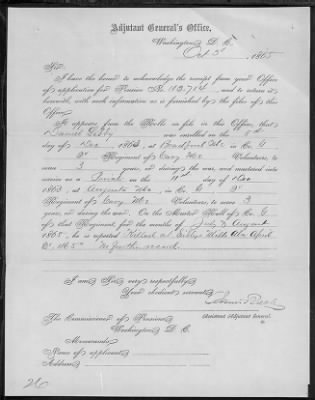 Adjutant General's Office,
Washington, D. C.
Oct 5th, 1865
Sir:
I have the honor to acknowledge the receipt from your Office
of application for Pension No. 113,714, and to return it
herewith, with such information as is furnished by the files of this
Office.
It appears from the Rolls on file in this Office, that
Daniel Libby was enrolled on the
day of Dec, 1863, at Bradford Me in Co. G
2d Regiment of Cavy Me Volunteers, to
serve 3 years, or during the war, and mustered into
service as a Private on the 11th day of Dec
1863, at Augusta Me, in Co. G 2d
Regiment of Cavy Me Volunteers, to serve 3
years, or during the war. On the Muster Roll of Co. G
of that Regiment, for the months of July & August
1865, he is reported "Killed at Mills Ala April
1865" No further record.
I am, Sir, very respectfully,
Your obedient servant,
Assistant Adjutant General.
The Commissioner of Pensions,
Washington, D. C.
Memoranda:
Name of applicant
Address
26